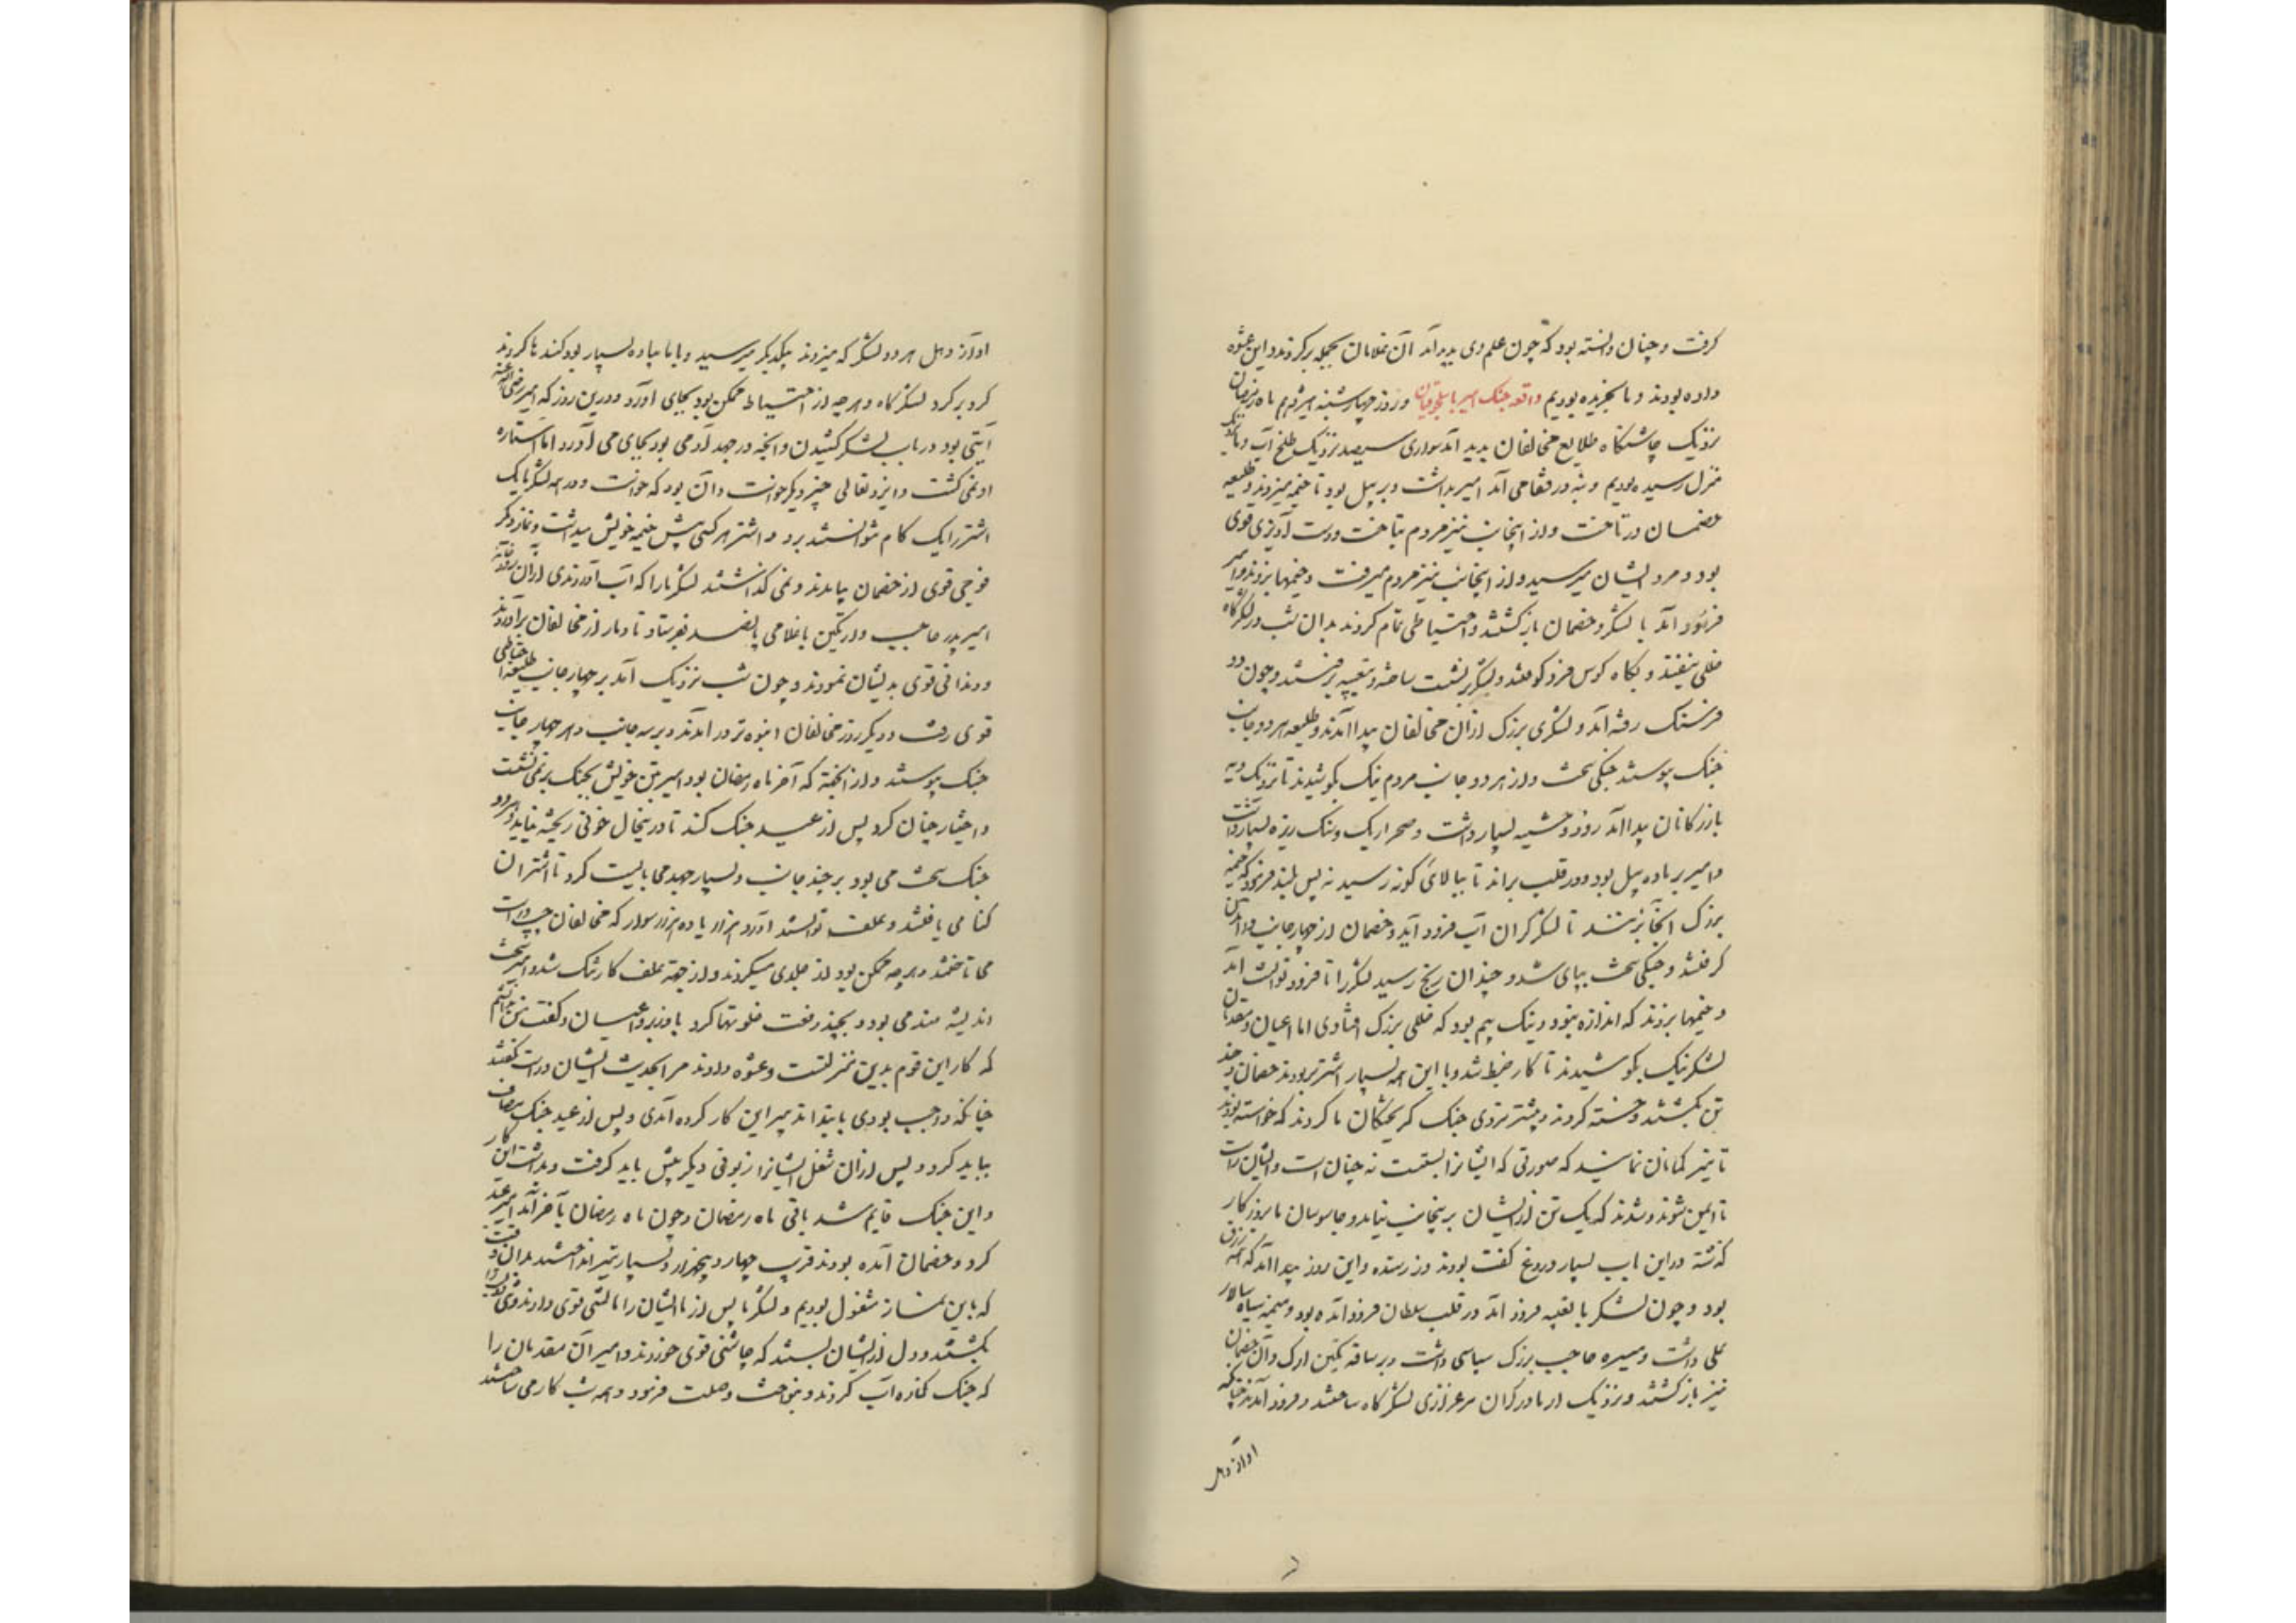 گرفت و چنان دانسته بود که چون علم وی پدید آمد آن غلامان بجمله برگردند و این عشوه
داده بودند و ما بخریده بودیم واقعه جنک امیر با سلجوقیان و روز چهارشنبه ماه رمضان
نزدیک چاشتگاه طلایع مخالفان پدید آمد سواری سیصد نزدیک طلخ آب و ما نزدیک
منزل رسیده بودیم و بنه در قفا می آمد امیر بداشت و بر پیل بود تا خیمه میزدند و طلیعه
خصمان در تاخت و از اینجانب نیز مردم بتاخت و دست آویزی قوی
بود و مردم ایشان میرسید و از اینجانب نیز مردم میرفت و خیمها بزدند و امیر
فرود آمد با لشکر و خصمان بازگشتند و احتیاطی تمام کردند بدان شب در لشکرگاه
خللی نیفتد و پگاه کوس فرو کوفتند و لشکر برنشست ساخته و بتعبیه برفتند و چون دو
فرسنک رفته آمد و لشکری بزرک ازان مخالفان پیدا آمدند و طلیعه هر دو جانب
جنک پیوستند جنکی سخت و از هر دو جانب مردم نیک بکوشیدند تا نزدیک دیه
بازرگانان پیدا آمد رود و چشمه بسیار داشت و صحرا ریک و سنک ریزه بسیار داشت
و امیر بر ماده پیل بود و در قلب براند تا ببالای گونه رسید نه بس بلند فرمود که خیمه
بزرک آنجا بزنند تا لشکر کران آب فرود آید و خصمان از چهار جانب در آمدن
گرفتند و جنکی سخت بپای شد و چندان رنج رسید لشکر را تا فرود توانست آمد
و خیمها بزدند که اندازه نبود و نیک بیم بود که خللی بزرک افتادی اما اعیان و مقدمان
لشکر نیک بکوشیدند تا کار ضبط شد و با این همه بسیار اشتر بربودند خصمان و چند
تن بکشتند و خسته کردند و بیشتر نزدی جنک گریختگان ما کردند که خواسته بودند
تا نیز گمانان نماند که صورتی که ایشانرا بستست نه چنان است و ایشان راست
تا ایمن شوند و شدند که یک تن از ایشان برینجانب نیامد و جاسوسان ما بروزگار
گذشته درین باب بسیار دروغ گفته بودند و زر ستده و این روز پیدا آمد که همه تزرق
بود و چون لشکر با تعبیه فرود آمد در قلب سلطان فرود آمده بود و میمنه سپاه سالار
علی داشت و میسره حاجب بزرک سباشی داشت و بر ساقه تکین ارک و آن خصمان
نیز بازگشتند و نزدیک از ما در کران مرغزاری لشکرگاه ساختند و فرود آمدند چنانکه
آواز دهل
آواز دهل هر دو لشکر که میزدند بیکدیگر میرسید و با ما پیاده بسیار بود کندها کردند
گرد بر گرد لشکرگاه و هر چه از احتیاط ممکن بود بجای آورد و درین روز که امیر رضی الله عنه
آیتی بود در باب لشکر کشیدن و آنچه در جهد آدمی بود بجای می آورد اما ستاره
او نمی گشت و ایزد تعالی چیز دیگر خواست و آن بود که خواست و در همه لشکر یک
اشتر را یک گام نتوانستند برد و اشتر هر کسی پیش خیمه خویش میداشت و نماز دیگر
فوجی قوی از خصمان بیامدند و نمی گذاشتند لشکر ما را که آب آوردندی ازان رودخانه
امیر بدر حاجب و ارتکین با غلامی پانصد بفرستاد تا دمار از مخالفان برآوردند
و دندانی قوی بدیشان نمودند و چون شب نزدیک آمد بر چهار جانب طلیعه احتیاطی
قوی رفت و دیگر روز مخالفان انبوه تر در آمدند و بر سه جانب و هر چهار جانب
جنک پیوستند و از آنجهة که آخر ماه رمضان بود امیر بتن خویش بجنک بر نمی نشست
و اختیار چنان کرد پس از عید جنک کند تا درینحال خونی ریخته نیاید و هر روز
جنک سخت می بود بر چند جانب و بسیار جهد می بایست کرد تا اشتران
کنا می یافتند و علف توانستند آورد هزار یا ده هزار سوار که مخالفان چپ و راست
می تاختند و هر چه ممکن بود از جلدی میکردند و از جهة علف کار تنک شد و امیر سخت
اندیشه مند می بود و بچند دفعت خلوتها کرد با وزیر و اعیان و گفت من ندانستم
که کار این قوم بدین منزلتست و عشوه دادند مرا بحدیث ایشان و راست نگفتند
چنانکه واجب بودی بابتدا تدبیر این کار کرده آمدی و پس از عید جنک مصاف
بباید کرد و پس ازان شغل ایشانرا نوعی دیگر پیش باید گرفت و بداشت این کار
و این جنک قایم شد باقی ماه رمضان و چون ماه رمضان بآخر آمد امیر عید
کرد و خصمان آمده بودند قریب چهار و پنجهزار و بسیار تیر انداختند بدان وقت
که باین نماز مشغول بودیم و لشکر ما پس از نماز ایشان را مالشی قوی دادند و تنی
بکشتند و دل از ایشان بستند که چاشنی قوی خوردند و امیر آن مقدمان را
که جنک کناره آب کردند و بنواخت و صلت فرمود و همه شب کار می ساختند